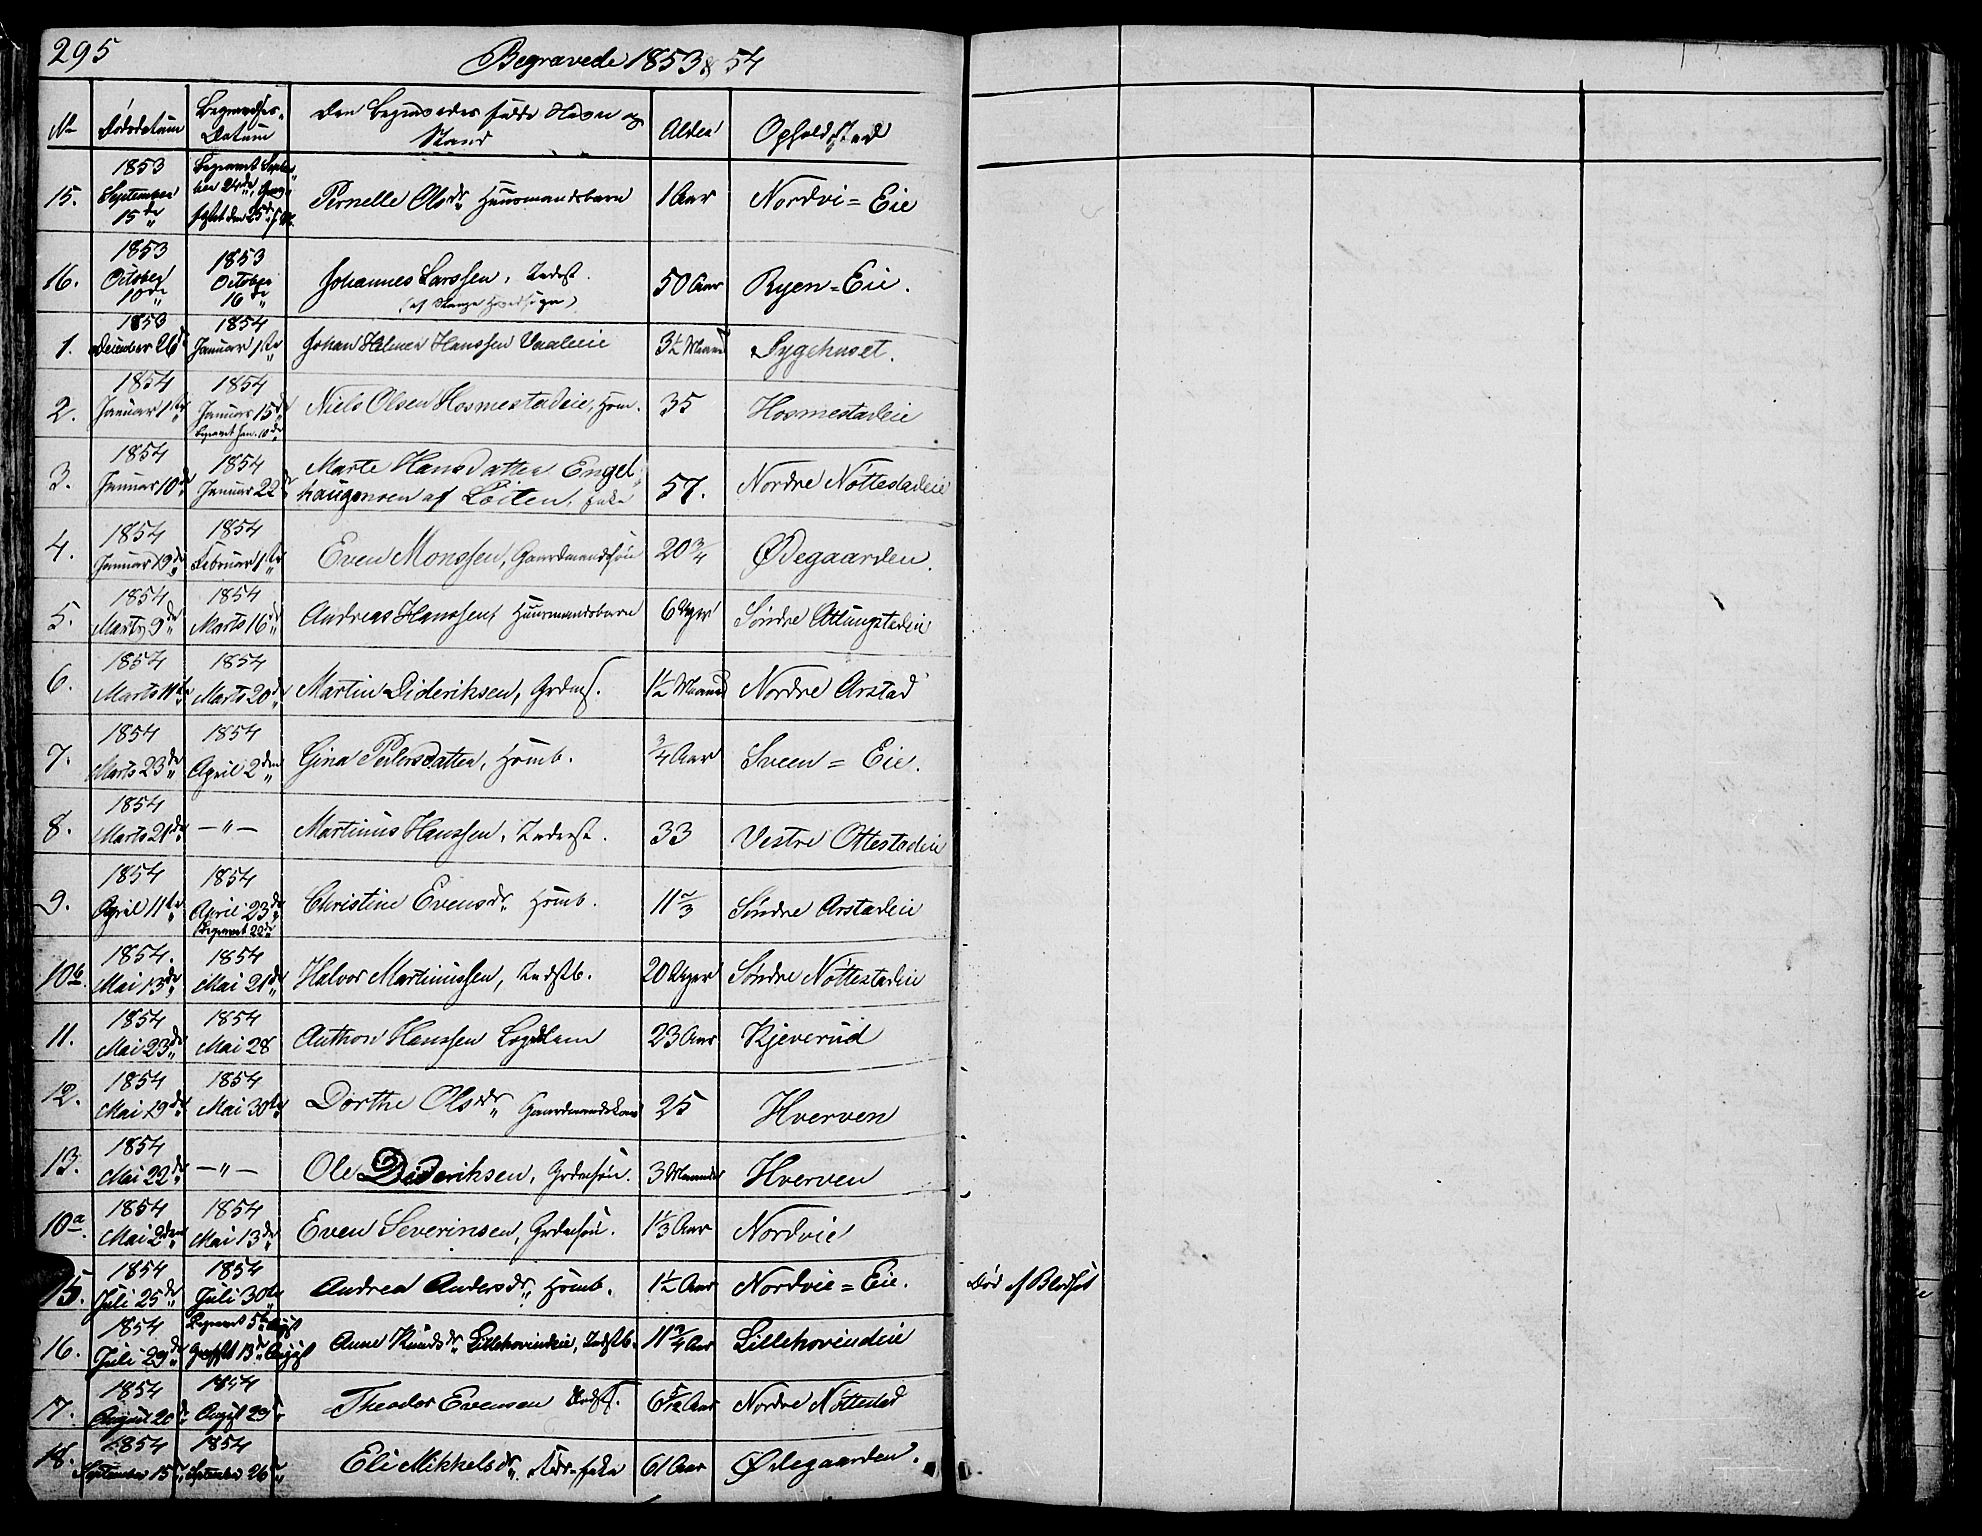 295
Begravede 1853 & 54
No Dødsdatum Begravelses-Datum Den Begravedes fulde Navn og Stand Alder Opholdsted
15. 1853 September 15de Begravet September 24de, den 25de Pernelle Olsdr. Huusmandsbarn 1 Aar Nordvi=Eie
16. 1853 October 10de 1853 October 16de Johannes Larssen, Inderst. 50 Aar Ryen=Eie.
(af Stange )
1. 1853 December 26de 1854 Januar 1ste Johan Hilmer Hanssen Vaaleeie 3½ Maaned Sygehuset.
2. 1854 Januar 1ste 1854 Januar 15de Begravet Jan. 10de Niels Olsen Hosmestadeie, Hsm. 35 Hosmestadeie
3. 1854 Januar 10de 1854 Januar 22de Marte Hansdatter Engel-
haugensen af Löiten, Enke 57. Nordre Nøttestadeie
4. 1854 Januar 19de 1854 Februar 1ste Even Monssen, Gaardmandssøn 20¾ Ødegaarden.
5. 1854 Marts 9de 1854 Marts 16de Andreas Hanssen, Huusmandsbarn 6 Uger Søndre
6. 1854 Marts 11te 1854 Marts 20de Martin Dideriksen, Grdms. 1½ Maaned Nordre Arstad
7. 1854 Marts 23de 1854 April 2den Gina Pedersdatter, Hsmb. ¾ Aar Sveen=Eie.
8. 1854 Marts 21de —"— Martinus Hanssen, Inderst. 33 Vestre Ottestadeie
9. 1854 April 11te 1854 April 23de Begravet 22de Christine Evensdr. Hsmb. 11⅔ Søndre Arstadeie
10b. 1854. Mai 13de 1854 Mai 21de Halvor Martinussen, Indstb. 20 Uger Søndre Nøttestadeie
11. 1854 Mai 23de 1854 Mai 28 Anthon Hanssen Logdlem 23 Aar Kjeverud
12. 1854 Mai 19de 1854 Mai 30te Dorthe Olsdr. Gaardmandskone 25 Hverven
13. 1854 Mai 22de —"— Ole Dideriksen, Grdmsøn. 3 Maaneder Hverven
10a. 1854 Mai 2den 1854 Mai 13de Even Severinsen, Grdmsøn. 1⅓ Aar Nordvie
15. 1854 Juli 25de 1854 Juli 30te Andrea Andersdr. Hsmb. 1½ Aar Nordvie=Eie. Død af Blodsot
16. 1854 Juli 29de Begravet 5te August 13de August Anne Knudsdr. Lillehovindeie, Indstb. 11¾ Aar Lillehovindeie
17. 1854 August 20de 1854 August 29de Theodor Evensen Indst. 6 5/12 Aar Nordre Nøttestad
18. 1854 September 15de 1854 September 26de Eli Mikkelsdr. Enke 61 Aar Ødegaarden.